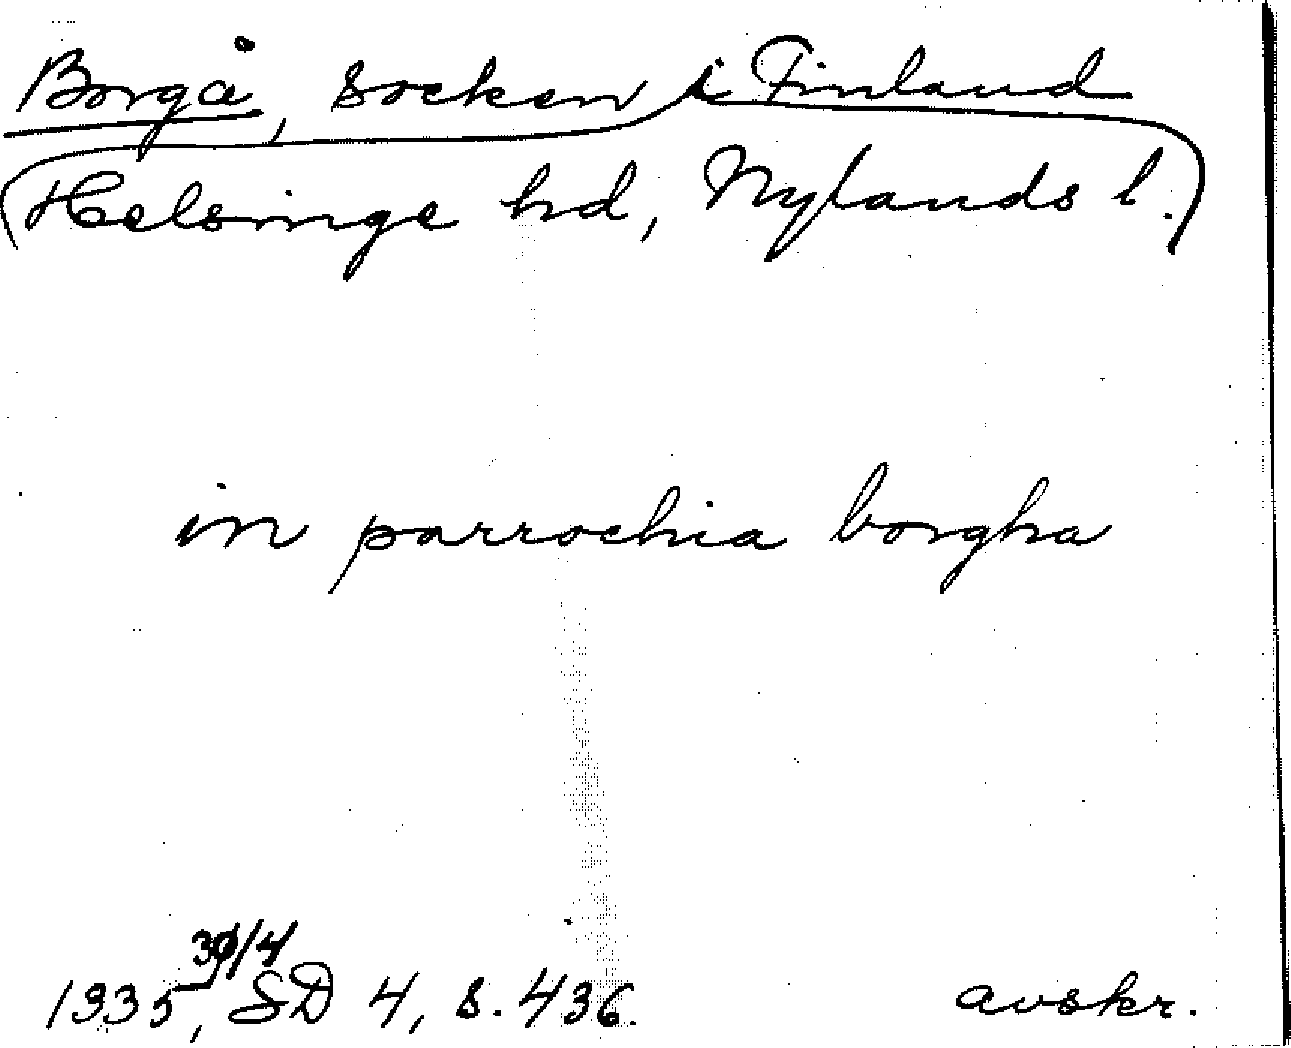 Borgå, socken i Finland
(Helsinge hd, Nylands l.)
in parrochia borgha
30/4
1335, SD 4, s. 436.
avskr.